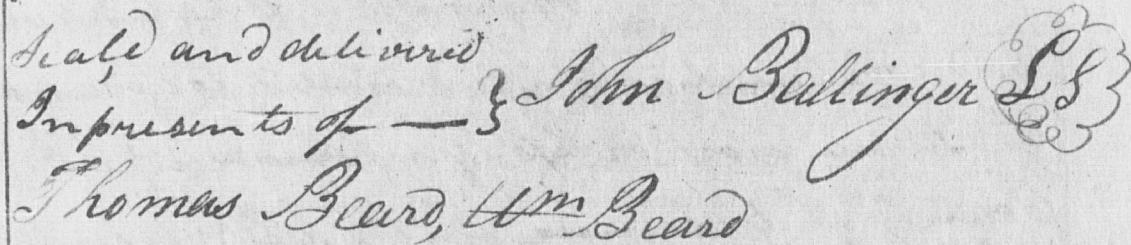 Seald and delivired
Inpresents of — } John Ballinger LS
Thomas Beard, Wm Beard